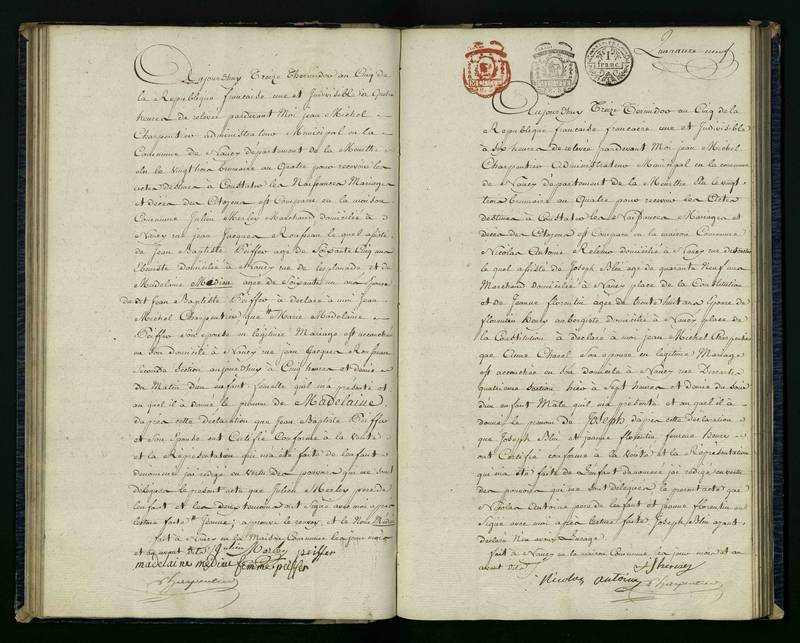 Aujourd'huy Treize Thermidor an Cinq de
la République française une et Indivisible à Quatre
heures de relevée pardevant Moi jean Michel
Charpentier administrateur Municipal en la
Commune de Nancy département de la Meurthe
élu le vingt trois brumaire an Quatre pour recevoir les
actes destinés à Constater les Naissances Mariages
et décès des Citoyens est Comparu en la maison
Commune Julien Merley Marchand domicilié à
Nancy rue jean Jacques Rousseau le quel assisté
de Jean Baptiste Peiffer agé de Soixante Cinq ans
domicilié à Nancy rue de l'esplanade et de
Madelaine Medieu agée de Soixante un ans Epouse
du dit Jean Baptiste Peiffer à déclaré à moi Jean
Michel Charpentier que Marie Madelaine
Peiffer Son épouse en légitime Mariage est accouchée
en Son domicile à Nancy rue jean Jacques Rousseau
Seconde Section aujourd'huy à Cinq heures et demie
du Matin d'un enfant femelle qu'il m'a présenté et
au quel il a donné le prénom de Madelaine
d'après cette déclaration que Jean Baptiste Peiffer
et Son Epouse ont Certifié Conforme à la vérité
et la Représentation qui m'a été faite de l'enfant
dénommé j'ai rédigé en vertu des pouvoirs qui me sont
délégués le présent acte que Julien Merley père de
l'enfant et les deux témoins ont Signé avec moi après
lecture faite
fait à Nancy en la Maison Commune les jour mois
et an avant dits Merley peiffer
madelaine medieu femme peiffer
Charpentier
1
franc
Quarante neuf
Aujourd'huy Treize Thermidor an Cinq de la
République française une et Indivisible
à Six heures de relevée pardevant Moi jean Michel
Charpentier Administrateur Municipal en la commune
de Nancy département de la Meurthe élu le vingt
trois brumaire an Quatre pour recevoir les Actes
destinés à Constater les Naissances Mariages et
décès des Citoyens est Comparu en la maison Commune
Nicolas Antoine domicilié à Nancy rue
le quel assisté de Joseph Blü agé de quarante Neuf ans
Marchand domicilié à Nancy place de la Constitution
et de Jeanne florentin agée de trente huit ans Epouse de
aubergiste domicilié à Nancy place de
la Constitution à déclaré à moi jean Michel Charpentier
que Son épouse en légitime Mariage
est accouchée en Son domicile à Nancy rue
quatrième Section hier à Sept heures et demie du Soir
d'un enfant Mâle qu'il m'a présenté et au quel il a
donné le prénom de Joseph d'après cette déclaration
que Joseph Blü et jeanne florentin
ont Certifié conforme à la vérité et la Représentation
qui m'a été faite de l'enfant dénommé j'ai rédigé en vertu
des pouvoirs qui me Sont délégués le présent acte que
Nicolas Antoine père de l'enfant et jeanne florentin ont
Signé avec moi après lecture faite Joseph Blü ayant
déclaré n'en avoir l'usage
fait à Nancy en la maison Commune les jour mois et an
avant dits
Nicolas Antoine Charpentier